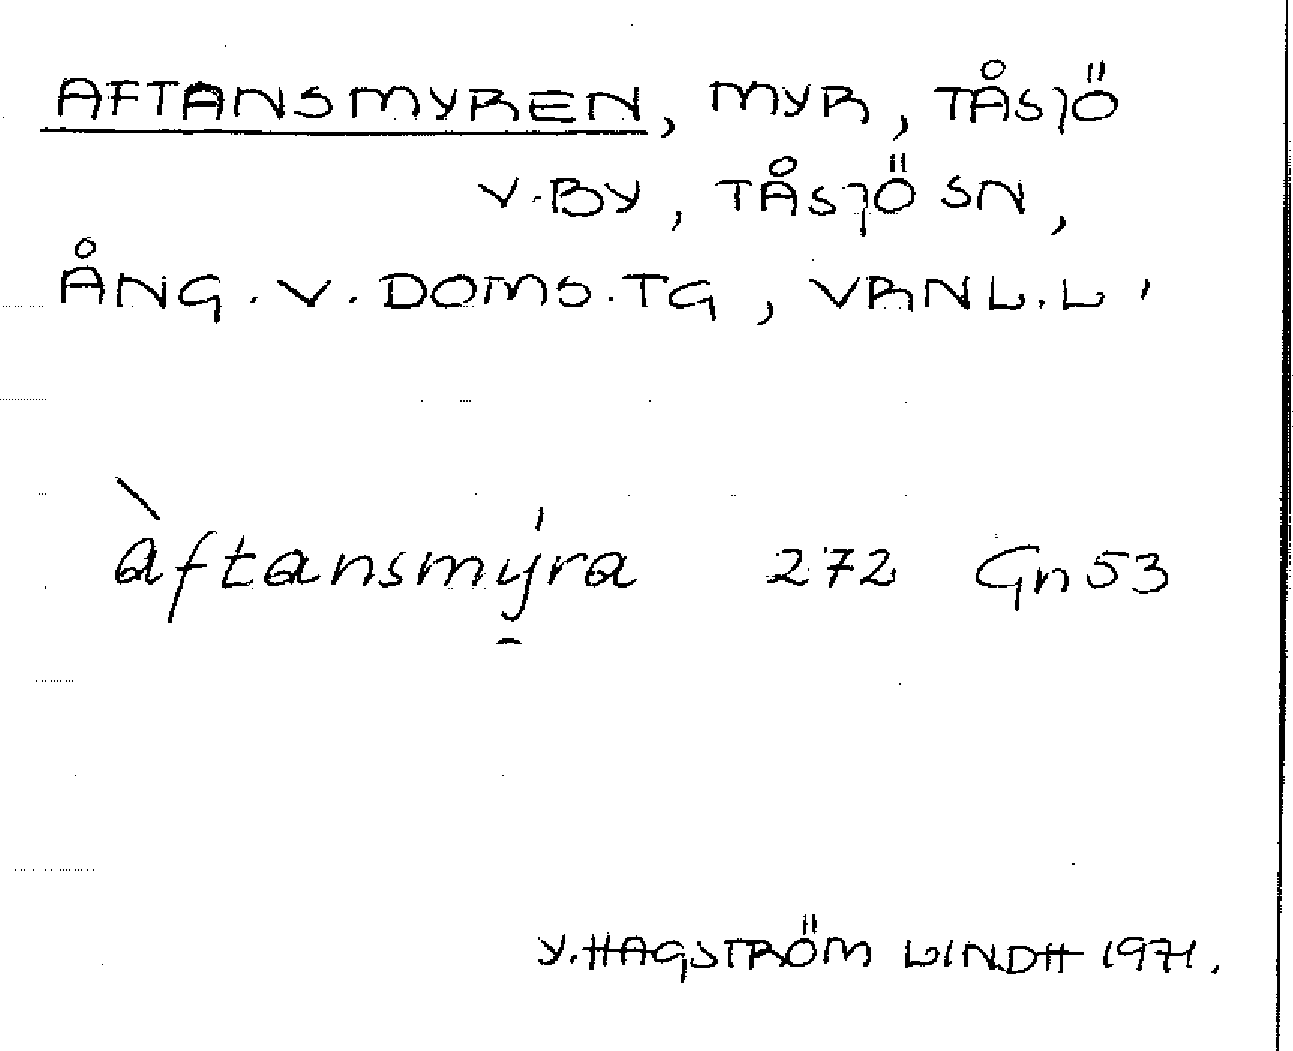 AFTANSMYREN, MYR, TÅSJÖ
V.BY, TÅSJÖ SN,
ÅNG. V. DOMS.TG, VRNL.L'
àftansmýra 272 Gn53
Y.HAGSTRÖM LINDH 1971.